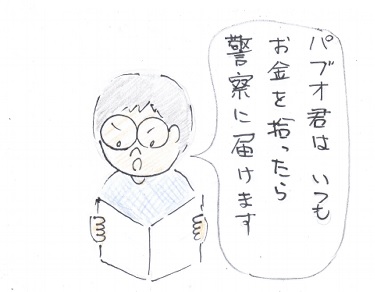 パブオ君は いつも
お金を拾ったら
警察に届けます